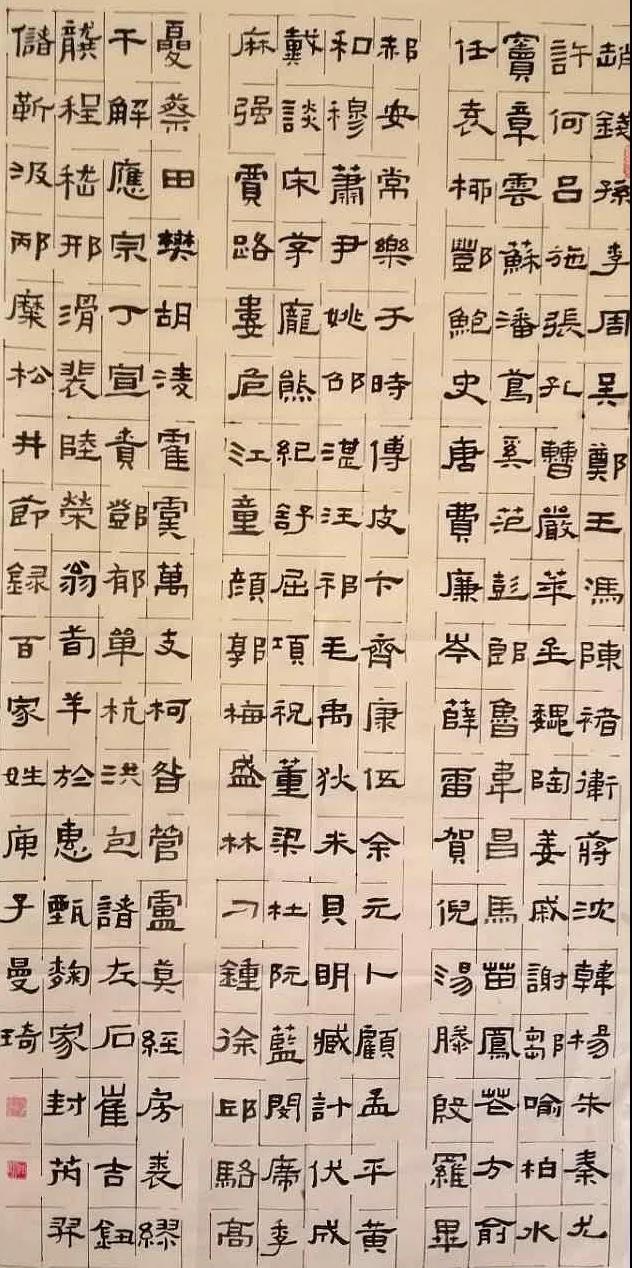 趙錢孫李周吳鄭王馮陳褚衛蔣沈韓楊朱秦尤
許何呂施張孔曹嚴華金魏陶姜戚謝鄒喻柏水
竇章雲蘇潘葛奚范彭郎魯韋昌馬苗鳳花方俞
任袁柳酆鮑史唐費廉岑薛雷賀倪湯滕殷羅畢
郝安常樂于時傅皮卞齊康伍余元卜顧孟平黃
和穆蕭尹姚邵湛汪祁毛禹狄米貝明臧計伏成
戴談宋茅龐熊紀舒屈項祝董梁杜阮藍閔席季
麻强賈路婁危江童顏郭梅盛林刁鍾徐邱駱高
夏蔡田樊胡淩霍虞萬支柯昝管盧莫經房裘繆
干解應宗丁宣賁鄧郁單杭洪包諸左石崔吉鈕
龔程嵇邢滑裴陸榮翁荀羊於惠甄麴家封芮羿
儲靳汲邴糜松井節録百家姓庚子曼琦